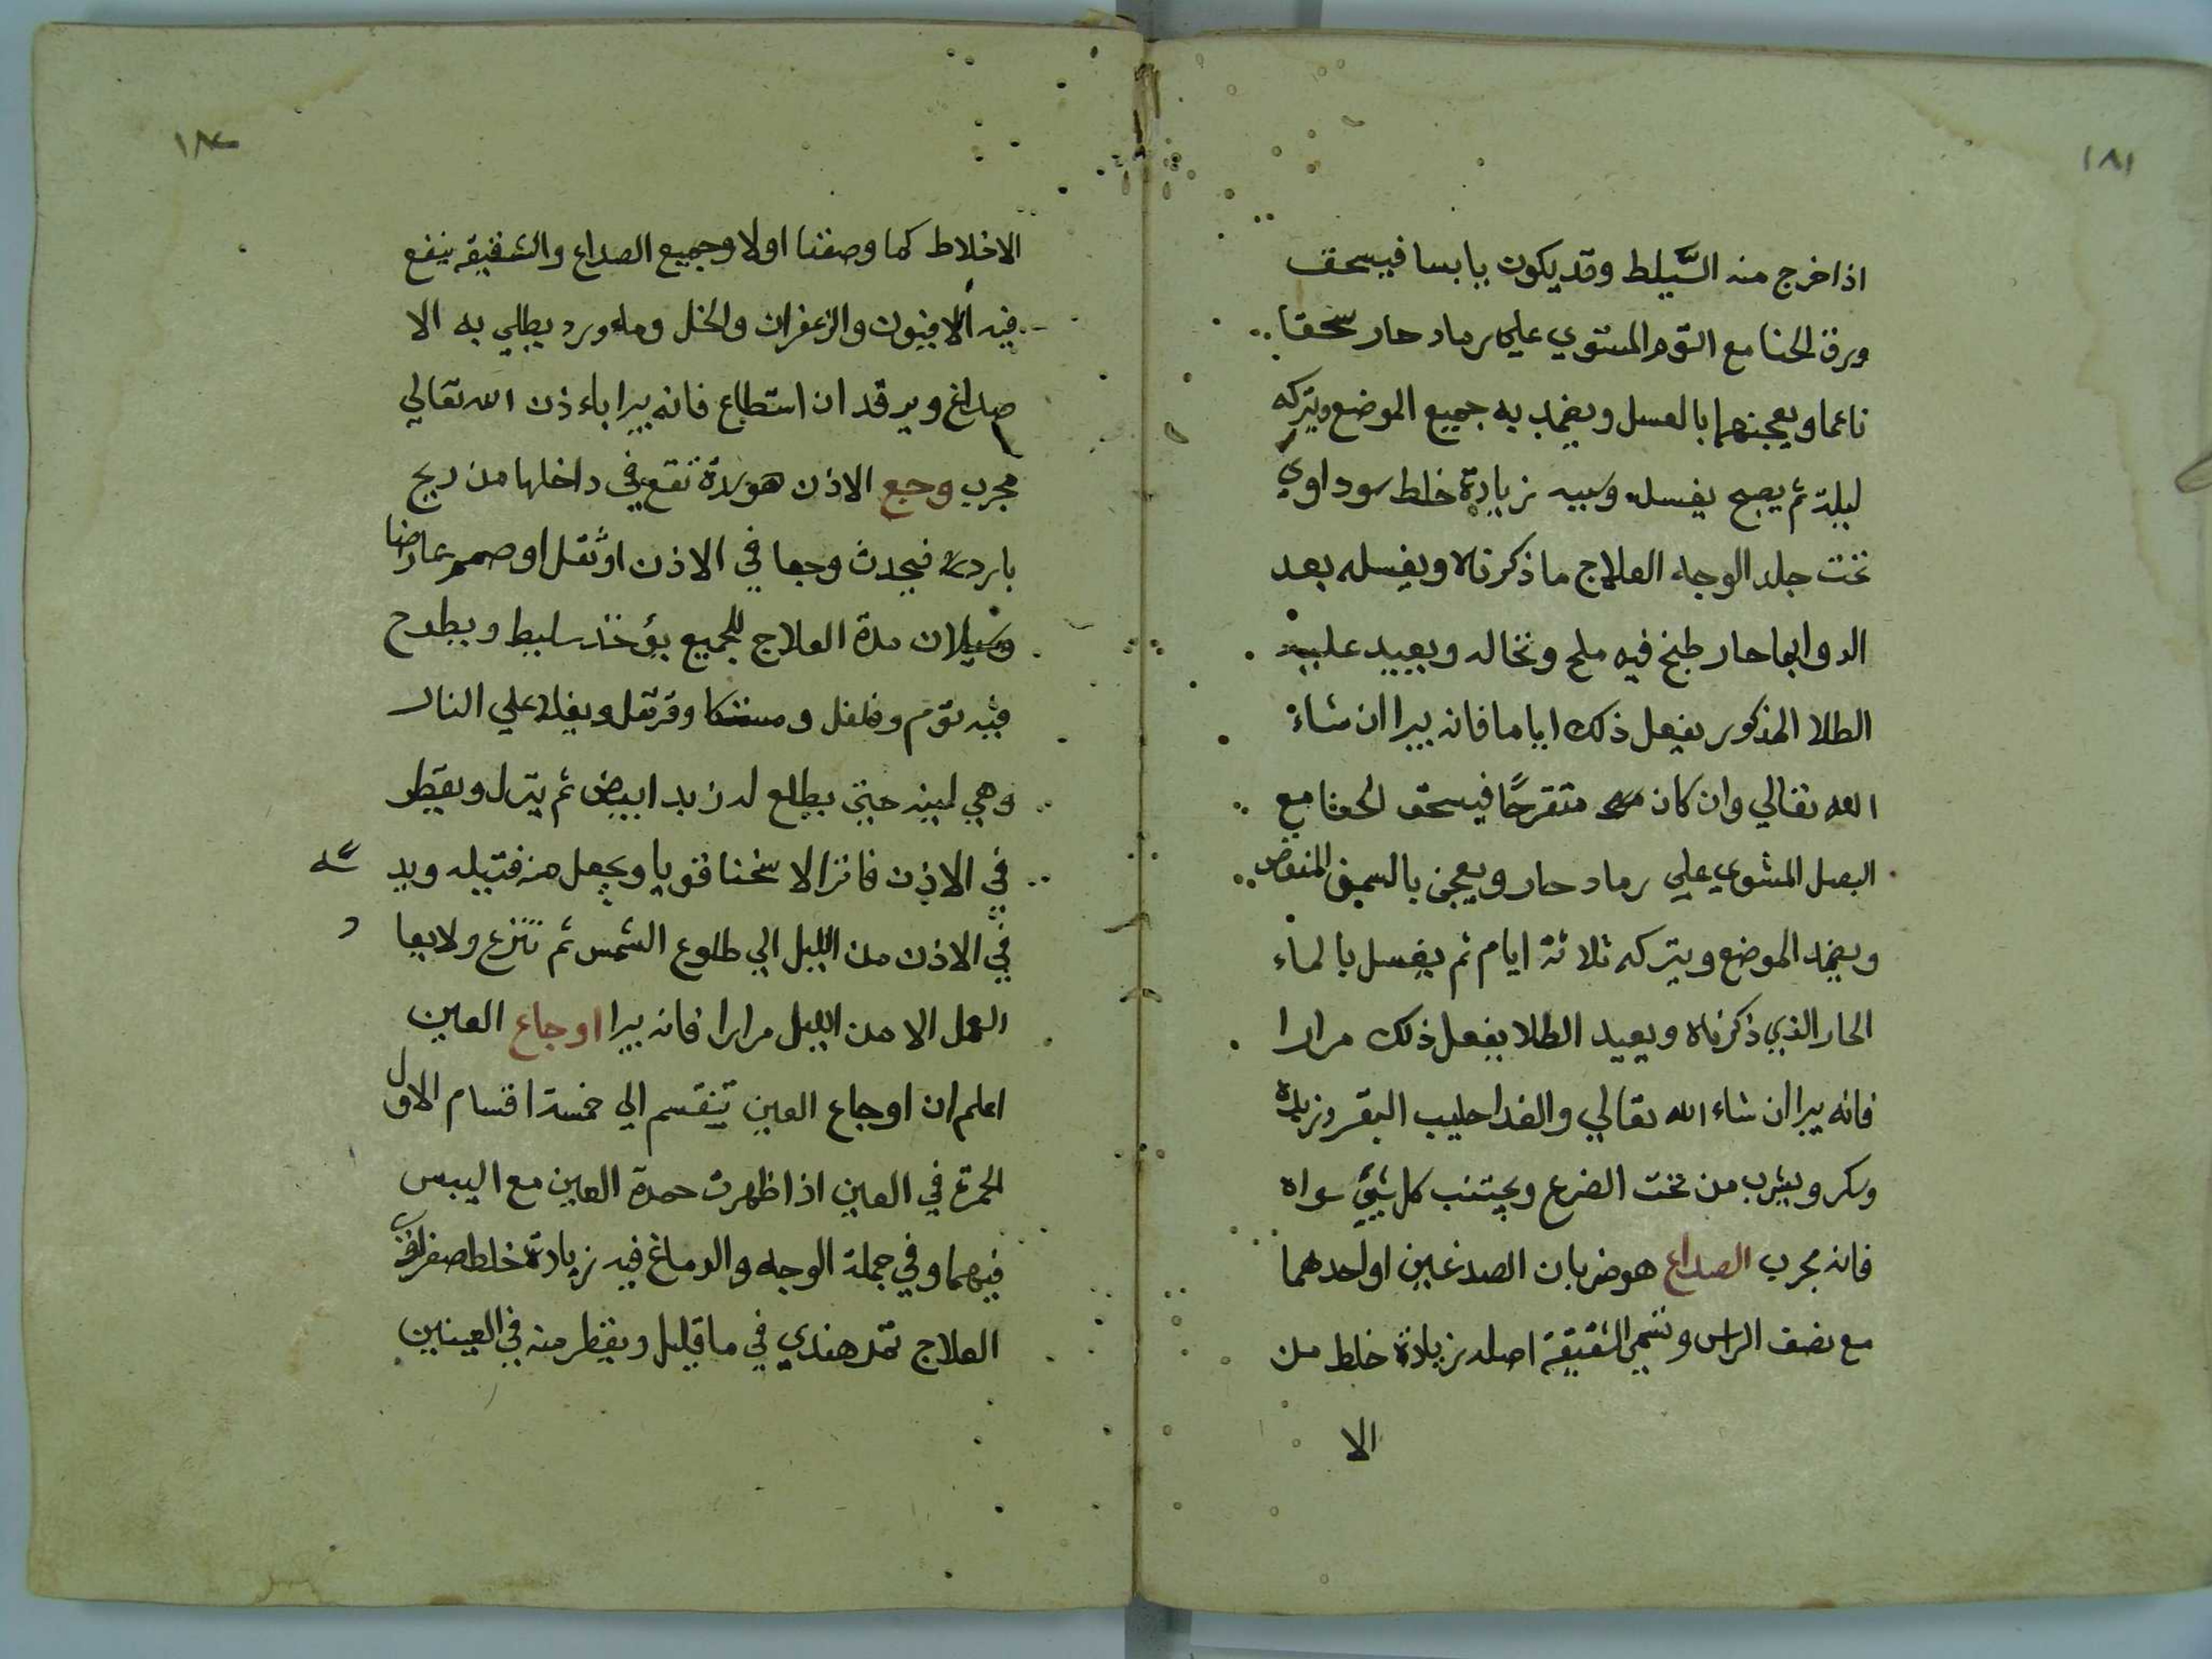 ١٨١
اذا خرج منه السَّيلط وقد يكون يابسا فيسحق
ورق الحنا مع الثوم المشوي علي رماد حار سحقا
ناعما ويعجنهما بالعسل ويضمد به جميع الموضع ويتركه
ليلة ثم يصبح يغسله وسببه زيادة خلط سوداوي
تحت جلد الوجه العلاج ما ذكرناه ويغسله بعد
الدوا بما حار طبخ فيه ملح ونخاله ويعيد عليه
الطلا المذكور يفعل ذلك اياما فانه يبرا ان شاء
الله تعالي وان كان متقرحًا فيسحق الحنا مع
البصل المشوي علي رماد حار ويعجن بالسمن
ويضمد الموضع ويتركه ثلاثة ايام ثم يغسل بالماء
الحار الذي ذكرناه ويعيد الطلا يفعل ذلك مرارا
فانه يبرا ان شاء الله تعالي والغدا حليب البقر وزبده
وسكر ويشرب من تحت الضرع ويجتنب كل شيئ سواه
فانه مجرب الصداع هو ضربان الصدغين او احدهما
مع نصف الراس وتسمى الشقيقة اصله زيادة خلط من
الا
الاخلاط كما وصفنا اولا وجميع الصداع والشقيقه ينفع
فيه الافيون والزعفران والخل وماء ورد يطلي به الا
صداغ ويرقد ان استطاع فانه يبرا باءذن الله تعالي
مجرب وجع الاذن هو سدة تقع في داخلها من ريح
باردة فيحدث وجعا في الاذن او ثقل او صمم عارضا
وسيلان مدة العلاج للجميع يؤخذ سليط ويطرح
فيه ثوم وفلفل و وقرنفل ويغلا علي النار
وهي لينه حتى يطلع له زبد ابيض ثم ينزل ويقطر
في الاذن فاترا لا سخنا قويا ويجعل منه فتيله ويد سه
في الاذن من الليل الي طلوع الشمس ثم تنزع ولا يعا و
العمل الا من الليل مرارا فانه يبرا اوجاع العين
اعلم ان اوجاع العين تنقسم الي خمسة اقسام الاول
الحمرة في العين اذا ظهرت حمرة العين مع اليبس
فيهما وفي جملة الوجه والدماغ فيه زيادة خلط صفراوي
العلاج تمر هندي في ما قليل ويقطر منه في العينين